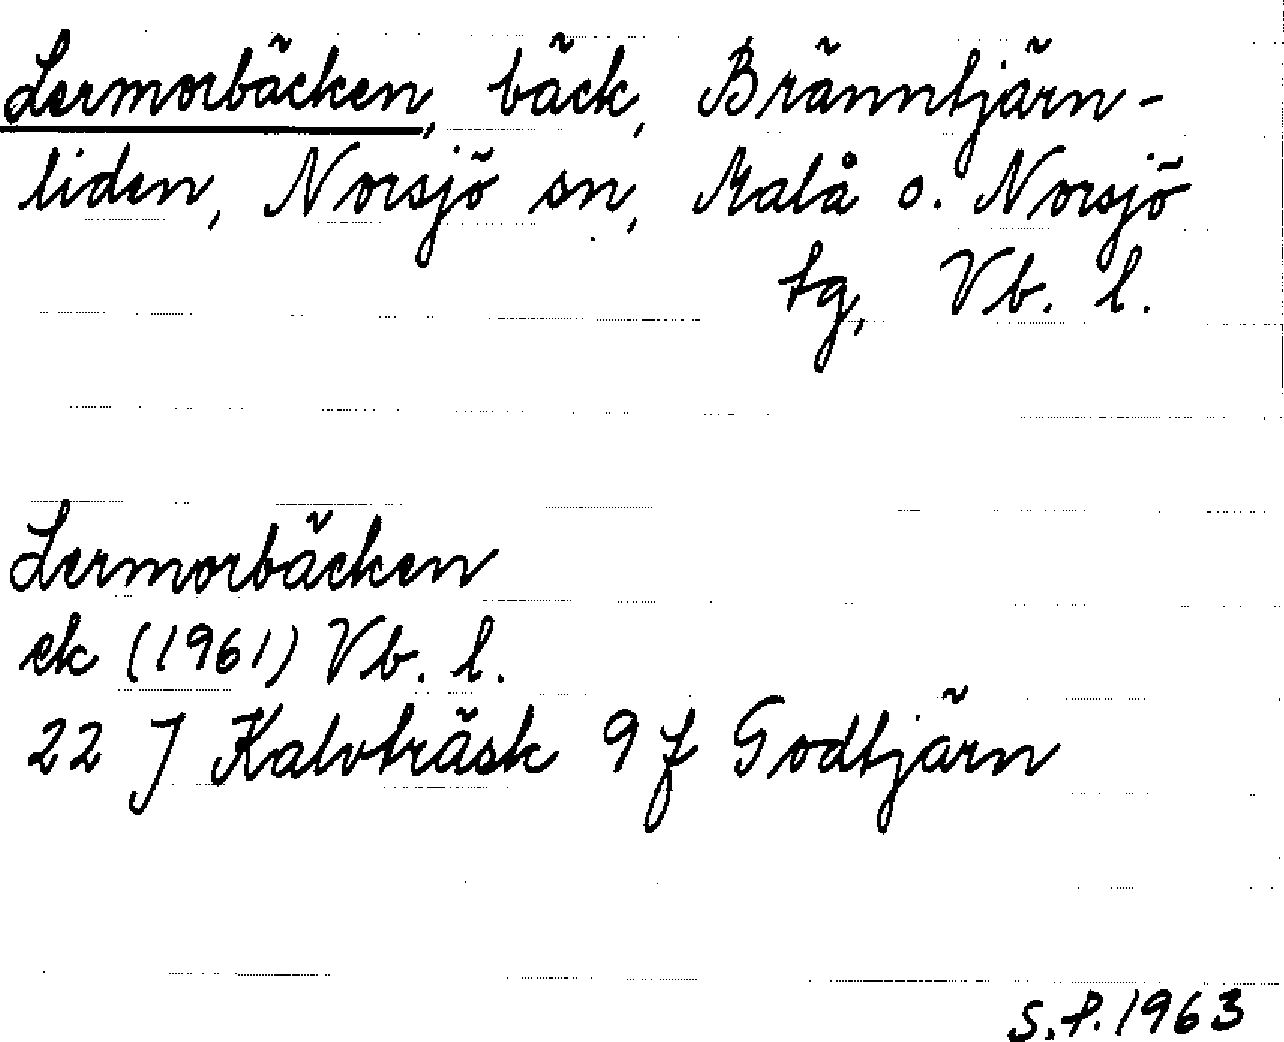 Lermorbäcken, bäck, Bränntjärn-
liden, Norsjö sn, Malå o. Norsjö
tg, Vb. l.
Lermorbäcken
ek (1961) Vb. l.
22 J Kalvträsk 9 f Godtjärn
S.P. 1963